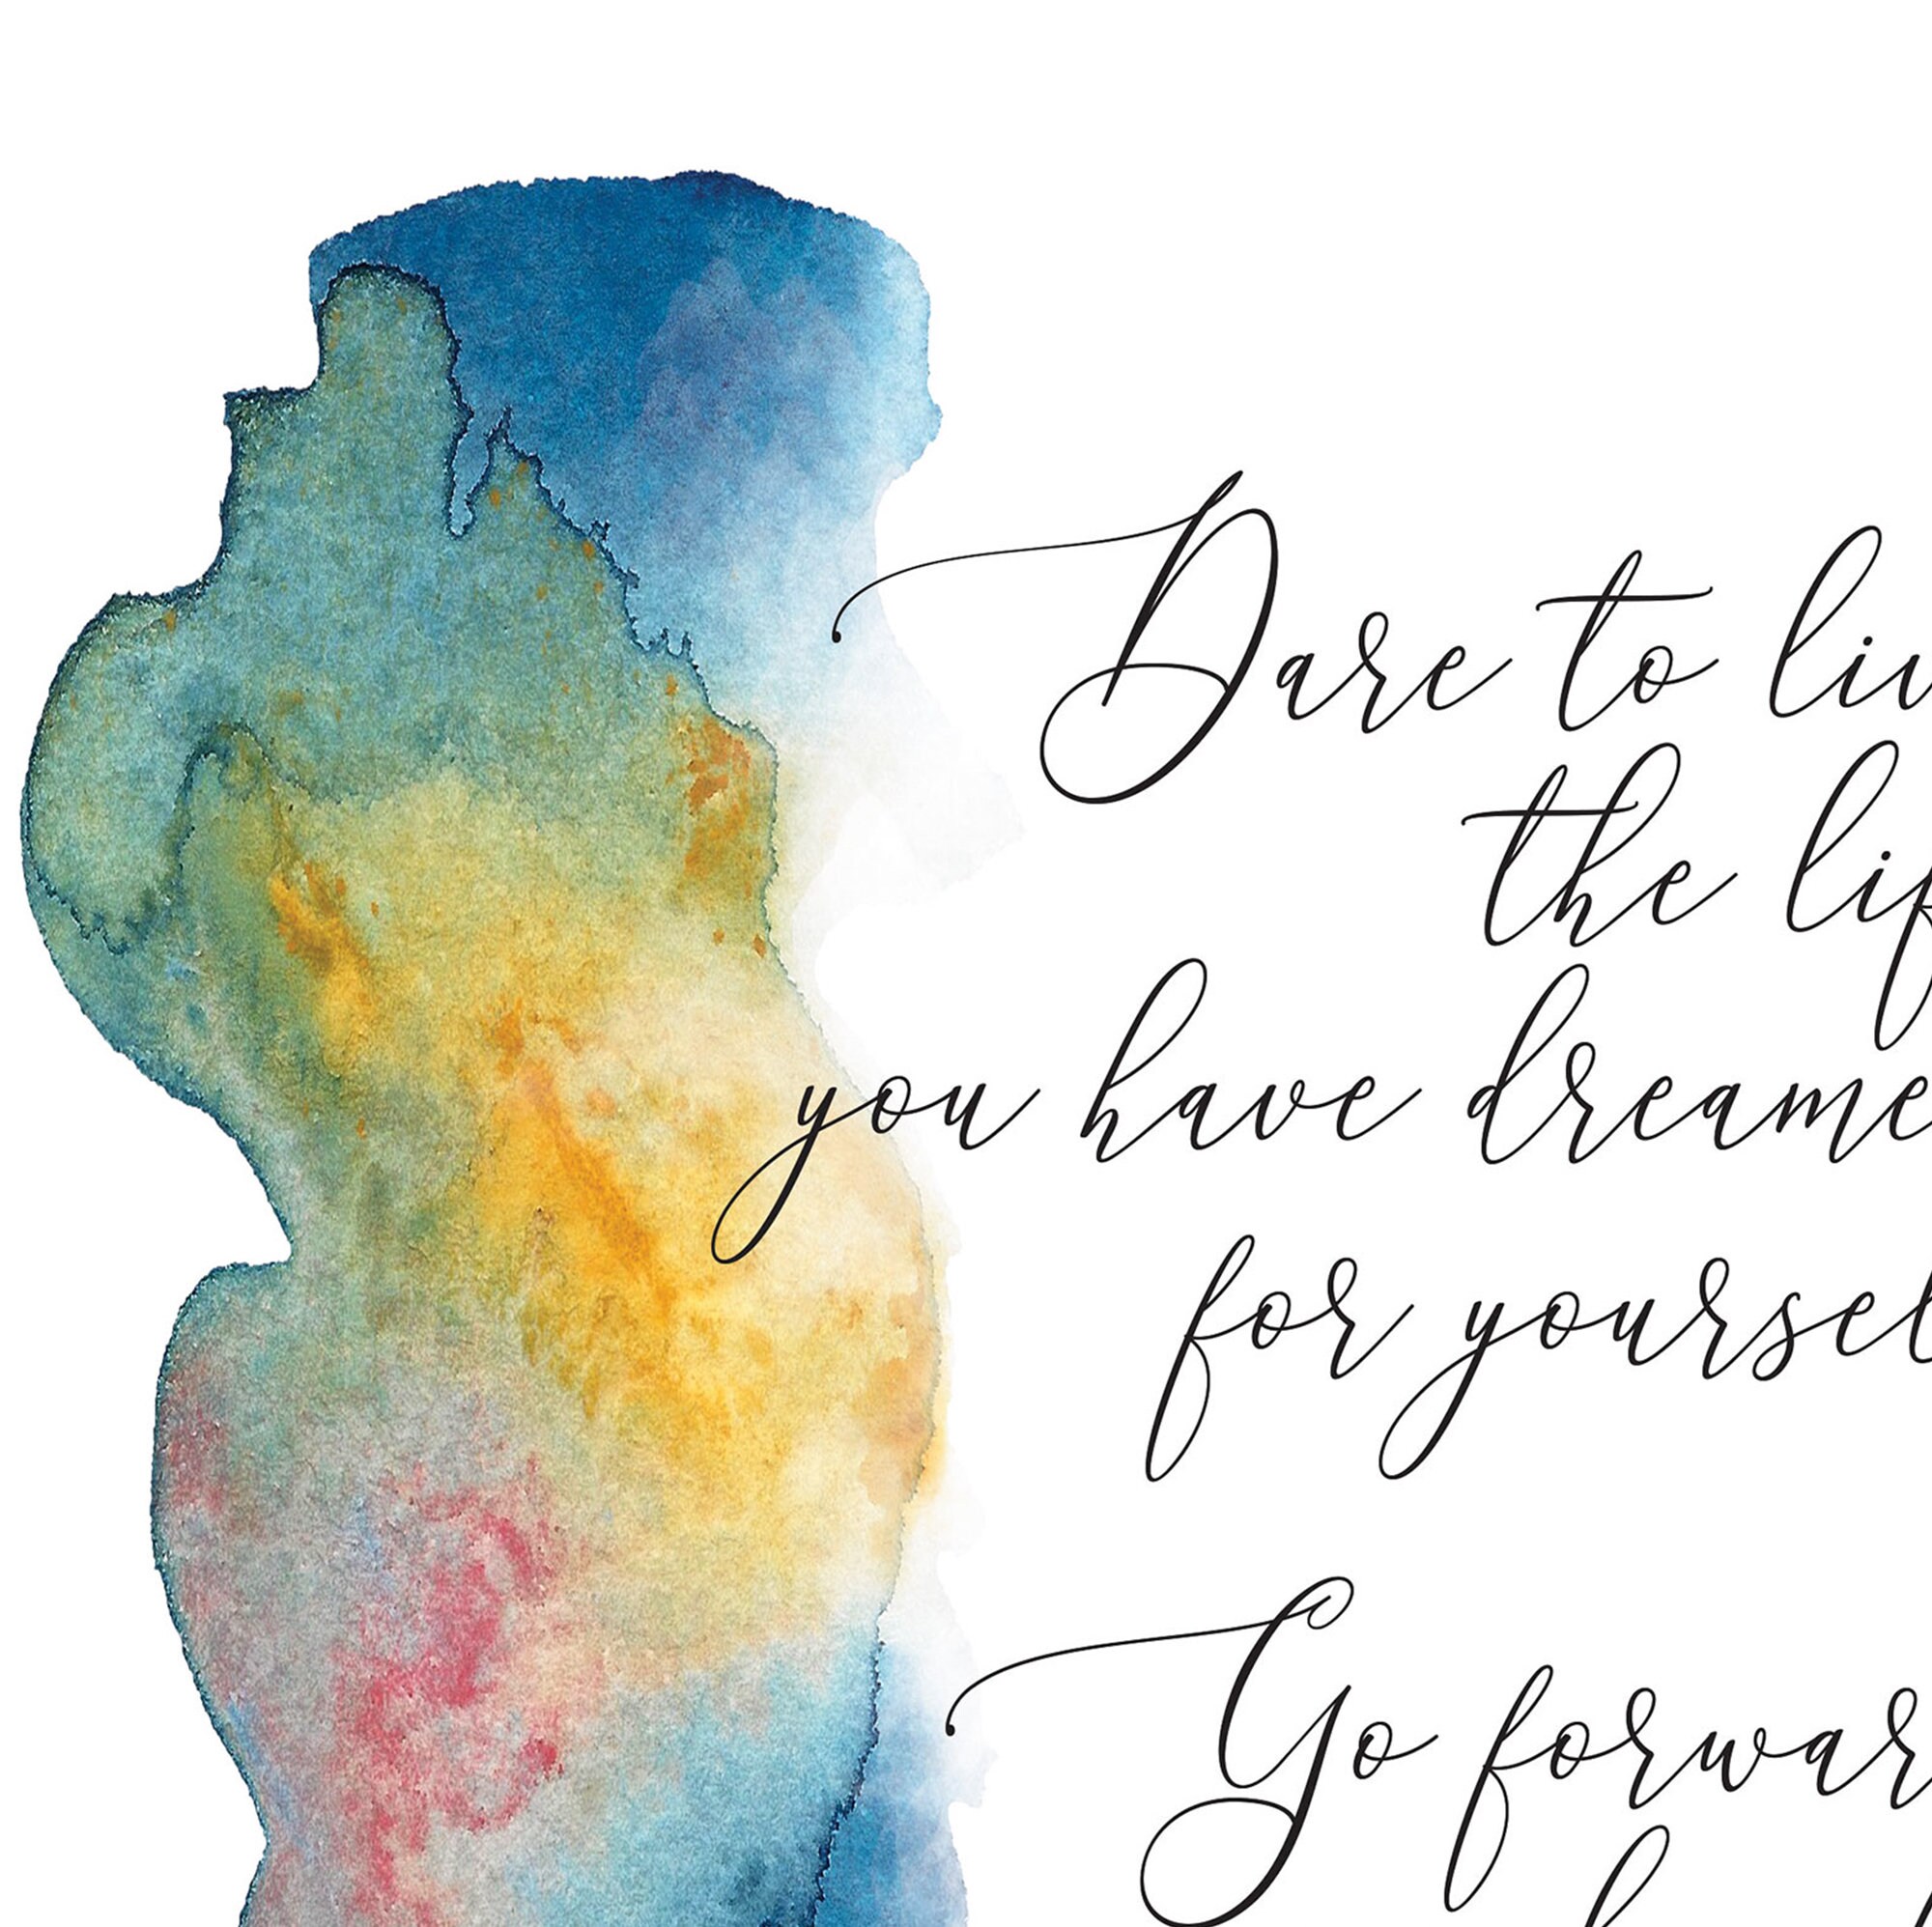 Dare to liv
the lif
you have dreame
for yoursel
Go forwar